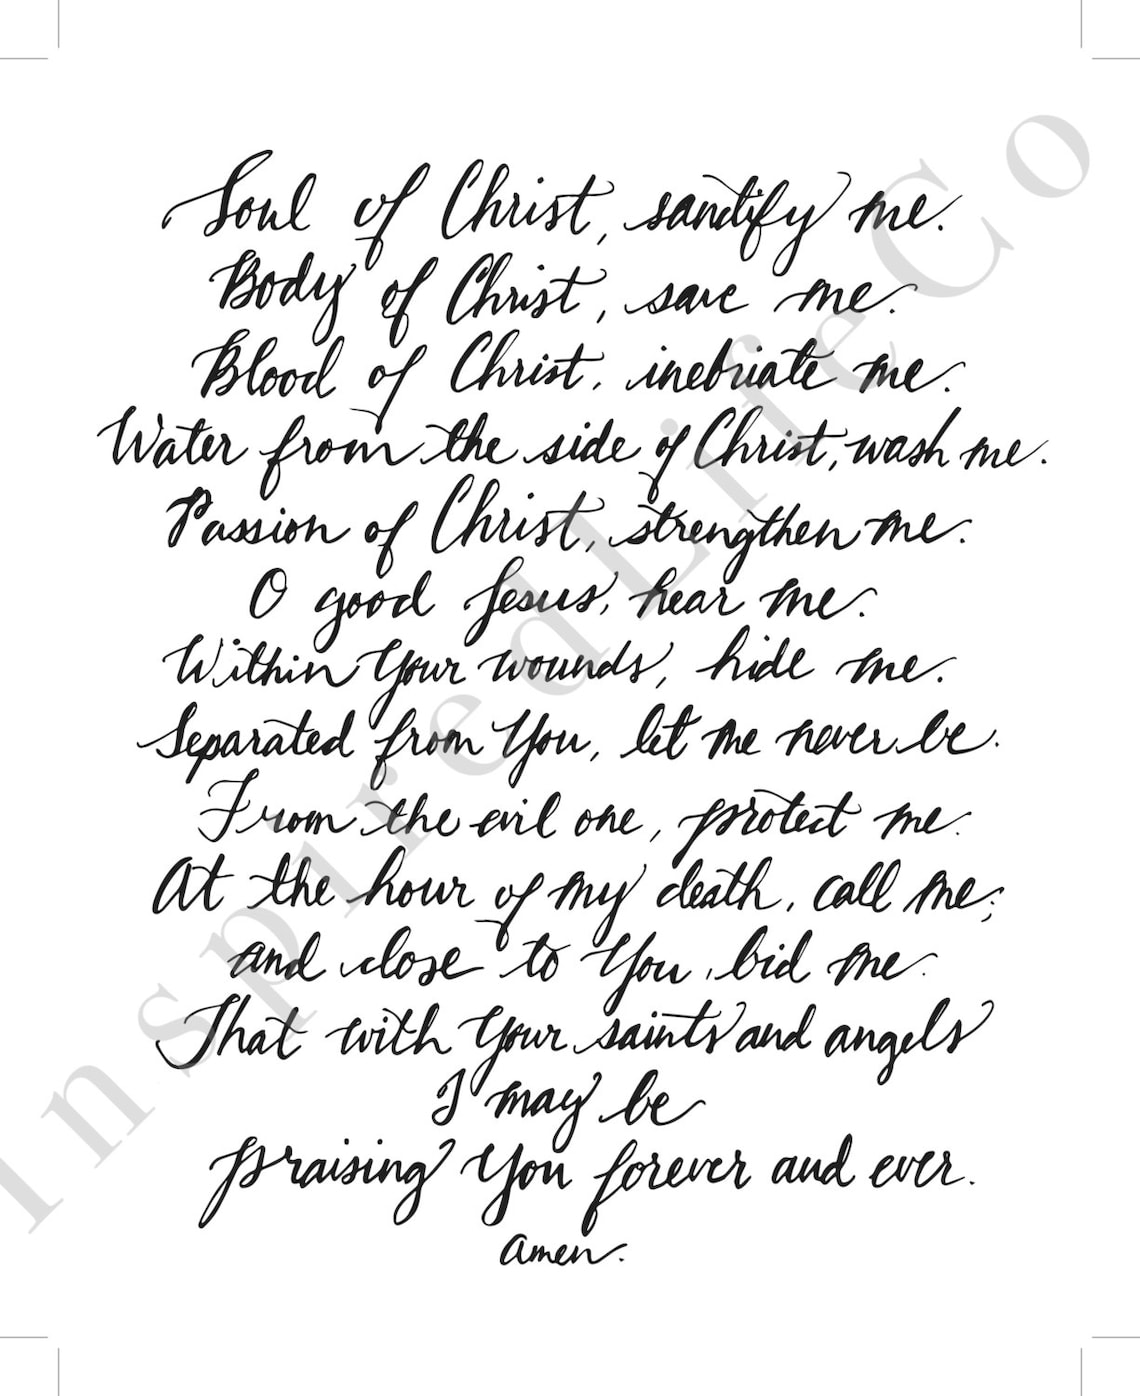 Soul of Christ, sanctify me.
Body of Christ, save me.
Blood of Christ, inebriate me.
Water from the side of Christ, wash me.
Passion of Christ, strengthen me.
O good Jesus, hear me.
Within Your wounds, hide me.
Separated from You, let me never be.
From the evil one, protect me.
At the hour of my death, call me;
and close to You, bid me.
That with Your saints and angels
I may be
praising You forever and ever.
Amen.
InspiredLifeCo